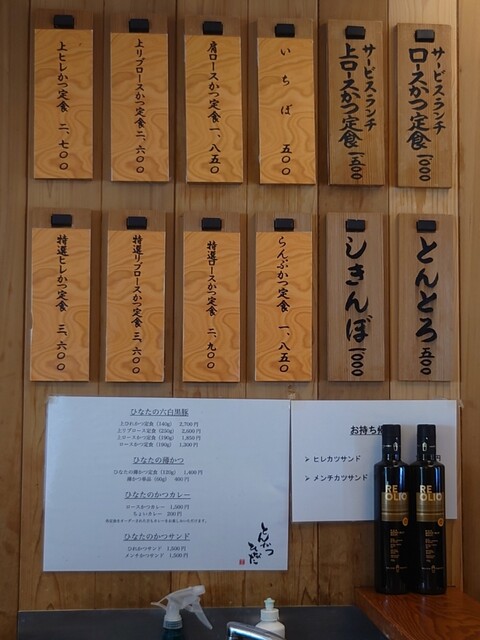 サービスランチ
ロースかつ定食 一〇〇〇
サービスランチ
上ロースかつ定食 一五〇〇
いちぼ 五〇〇
肩ロースかつ定食 一、八五〇
上リブロースかつ定食 二、六〇〇
上ヒレかつ定食 二、七〇〇
とんとろ 五〇〇
しきんぼ 一〇〇〇
らんぷかつ定食 一、八五〇
特選ロースかつ定食 二、九〇〇
特選リブロースかつ定食 三、六〇〇
特選ヒレかつ定食 三、六〇〇
ひなたの六白黒豚
上ひれかつ定食 (140g) 2,700円
上リブロース定食 (250g) 2,600円
上ロースかつ定食 (190g) 1,850円
ロースかつ定食 (160g) 1,500円
ひなたの薄かつ
ひなたの薄かつ定食 (120g) 1,400円
薄かつ単品 (60g) 400円
ひなたのかつカレー
ロースかつカレー 1,500円
ちょいカレー 350円
ひなたのかつサンド
ひれかつサンド 1,500円
メンチかつサンド 1,500円
とんかつ
ひなた
お持ち
➢ ヒレカツサンド
➢ メンチカツサンド
円
RE
OLIO
RE
OLIO